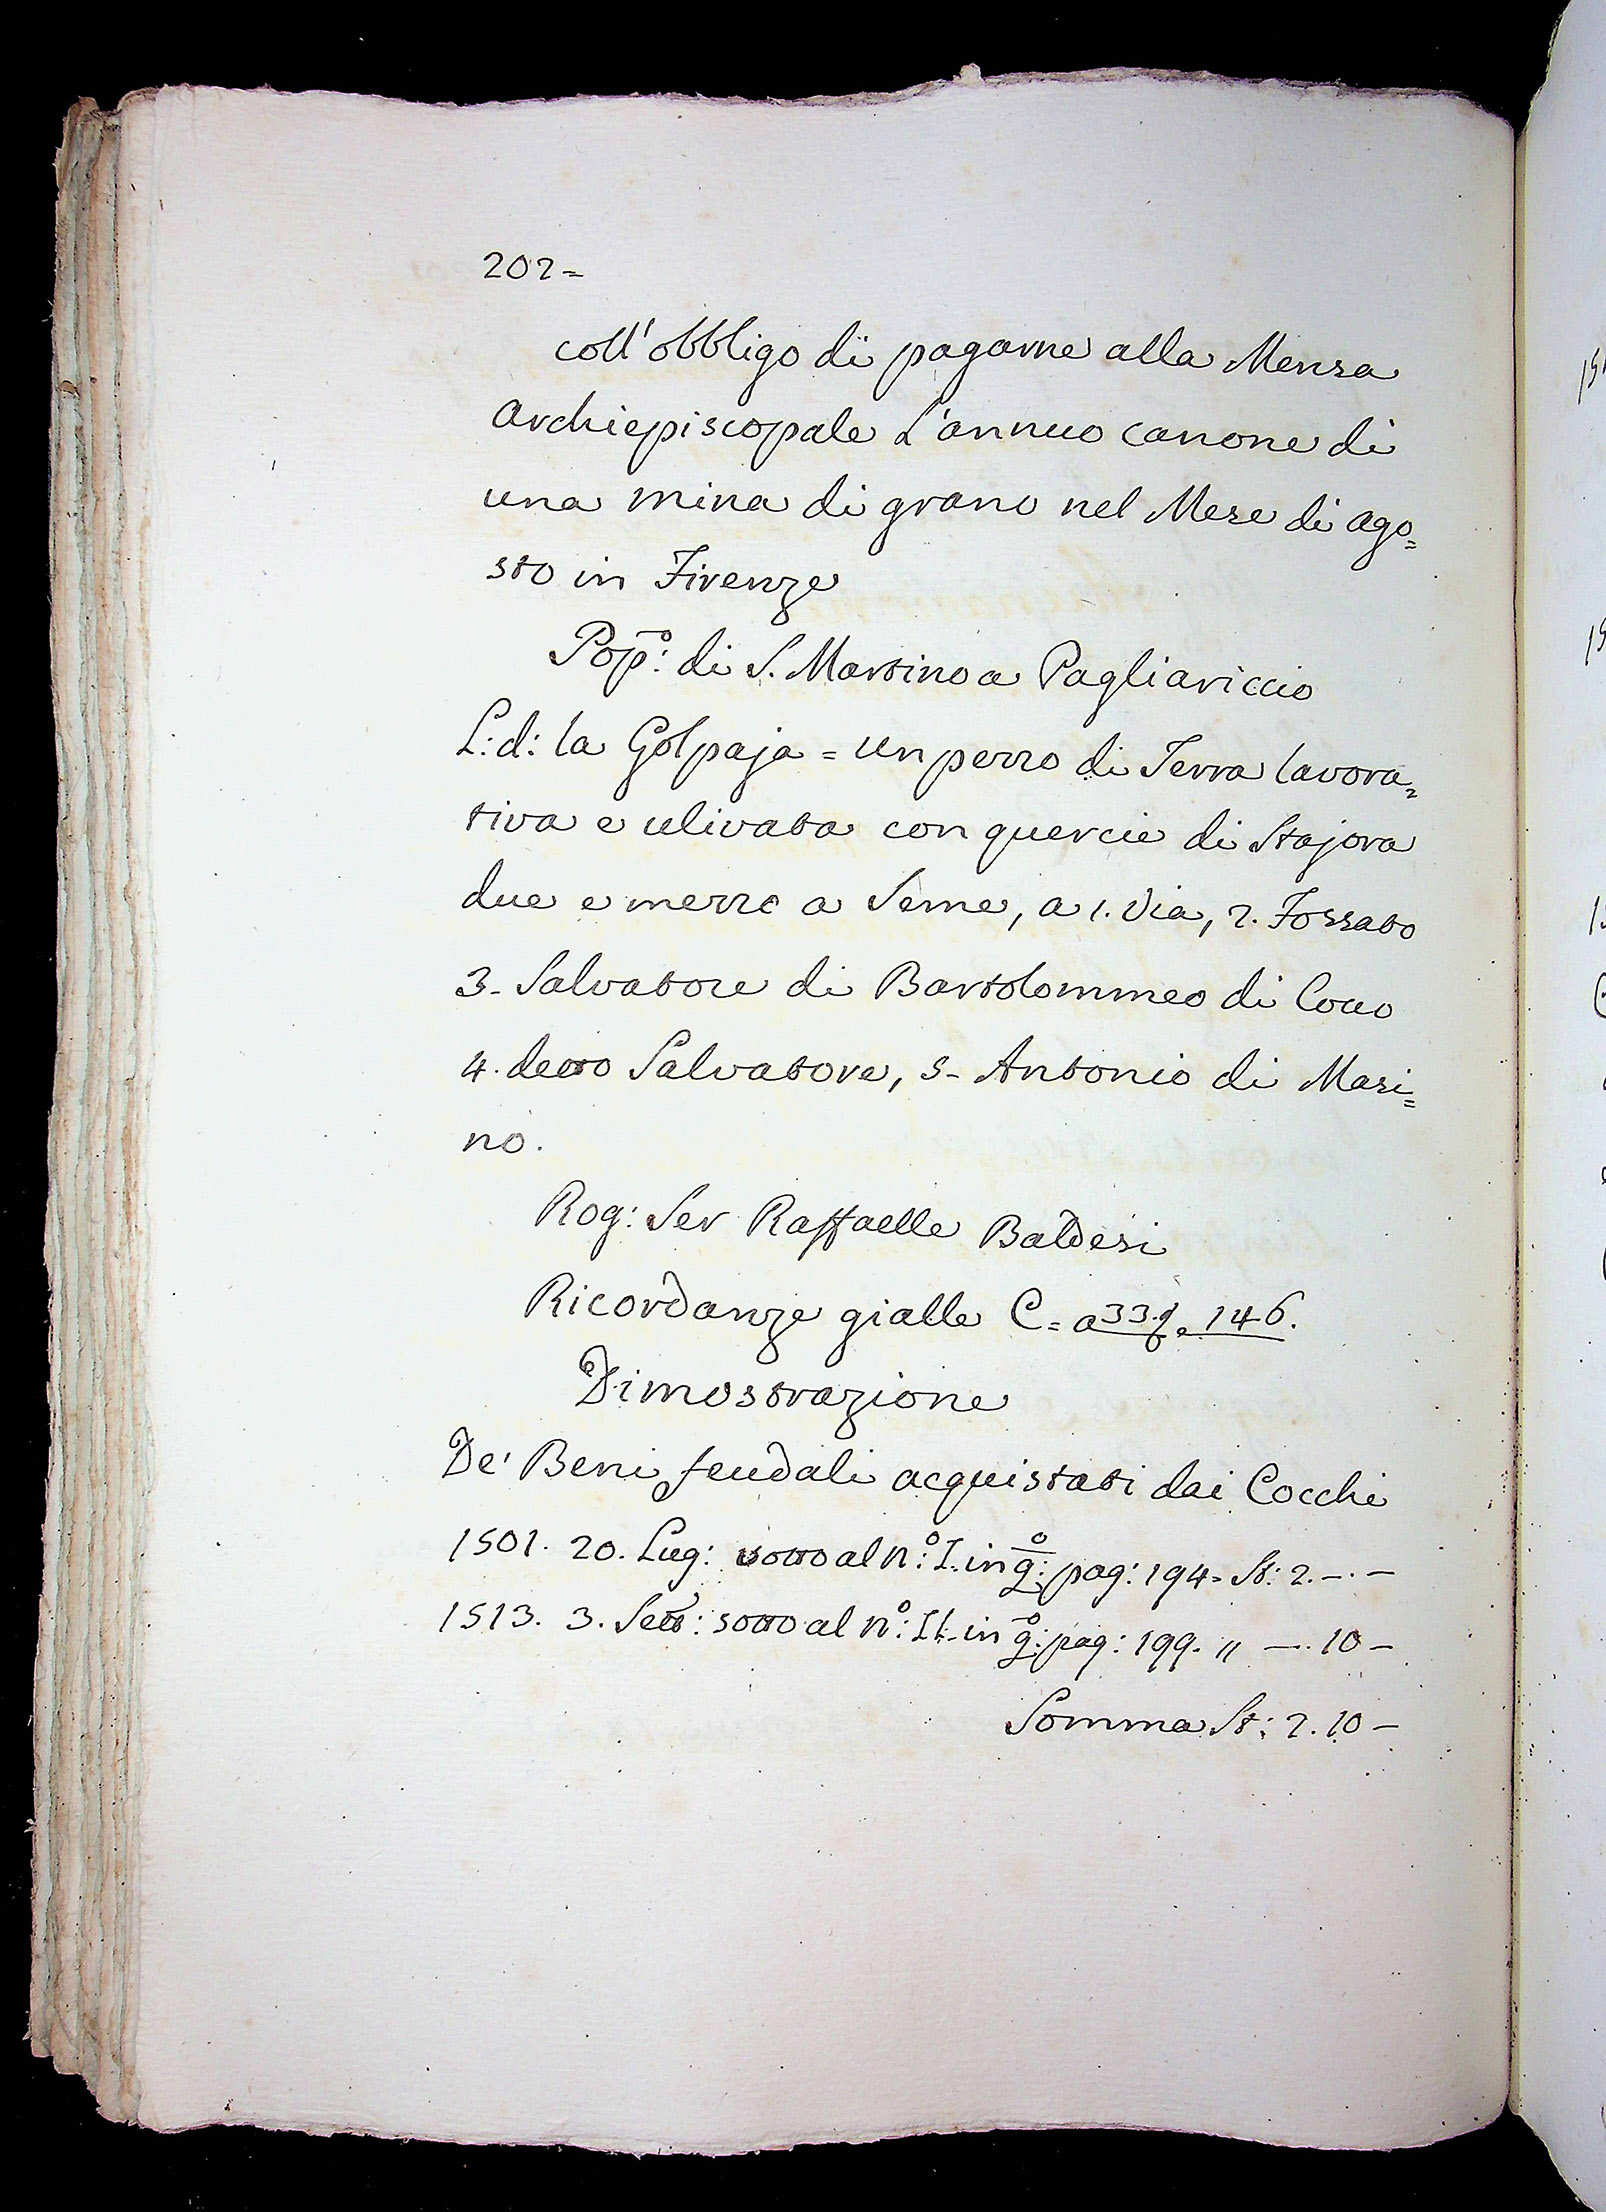 202=
coll'obbligo di pagarne alla Mensa
Archiepiscopale L'annuo canone di
una mina di grano nel Mese di ago=
sto in Firenze
Pop:º di S. Martino a Pagliariccio
L: d: la Golpaja = un pezzo di Terra lavora=
tiva e ulivata con quercie di Stajora
due e mezzo a Seme, a 1. Via, 2. Fossato
3- Salvatore di Bartolommeo di Cocco
4. detto Salvatore, 5- Antonio di Masi=
no.
Rog: Ser Raffaelle Baldesi
Ricordanze gialle C= a 33. e 146.
Dimostrazione
De' Beni feudali acquistati dai Cocchi
1501. 20. Lug: sotto al n:º I. in q:º pag: 194= St: 2. -. -
1513. 3. Sett: sotto al n:º II. in q:º pag: 199. " -. 10 -
Somma St: 2. 10 -